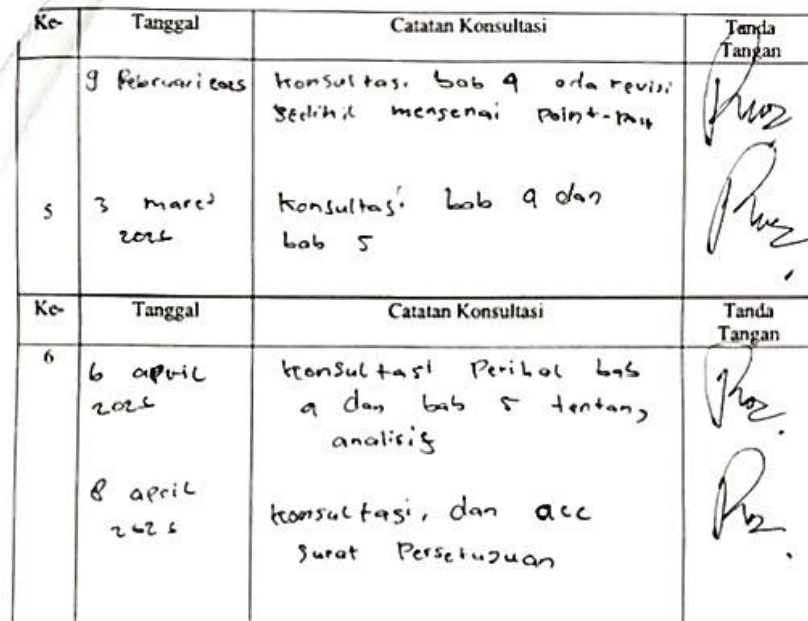 Ke- Tanggal Catatan Konsultasi Tanda Tangan
9 Februari 2025 Konsultasi bab 4 ada revisi
sedikit mengenai point-
5 3 maret Konsultasi bab 4 dan
2025 bab 5
Ke- Tanggal Catatan Konsultasi Tanda Tangan
6 6 april Konsultasi Perihal bab
2025 4 dan bab 5 tentang
analisis
8 april
2025 Konsultasi, dan acc
Surat Persetujuan